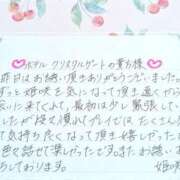 ホテル クリスタルゲートの貴方様
昨日はお誘い頂きありがとうございました
ずっと姫咲を気になって頂き遠くから
会いに来てくれて、最初は少し緊張してい
したが徐々に慣れプレイではたくさん
て気持ち良くなって頂き嬉しかった
色々話せて楽しかったです。またお誘い
ちしております。 姫咲